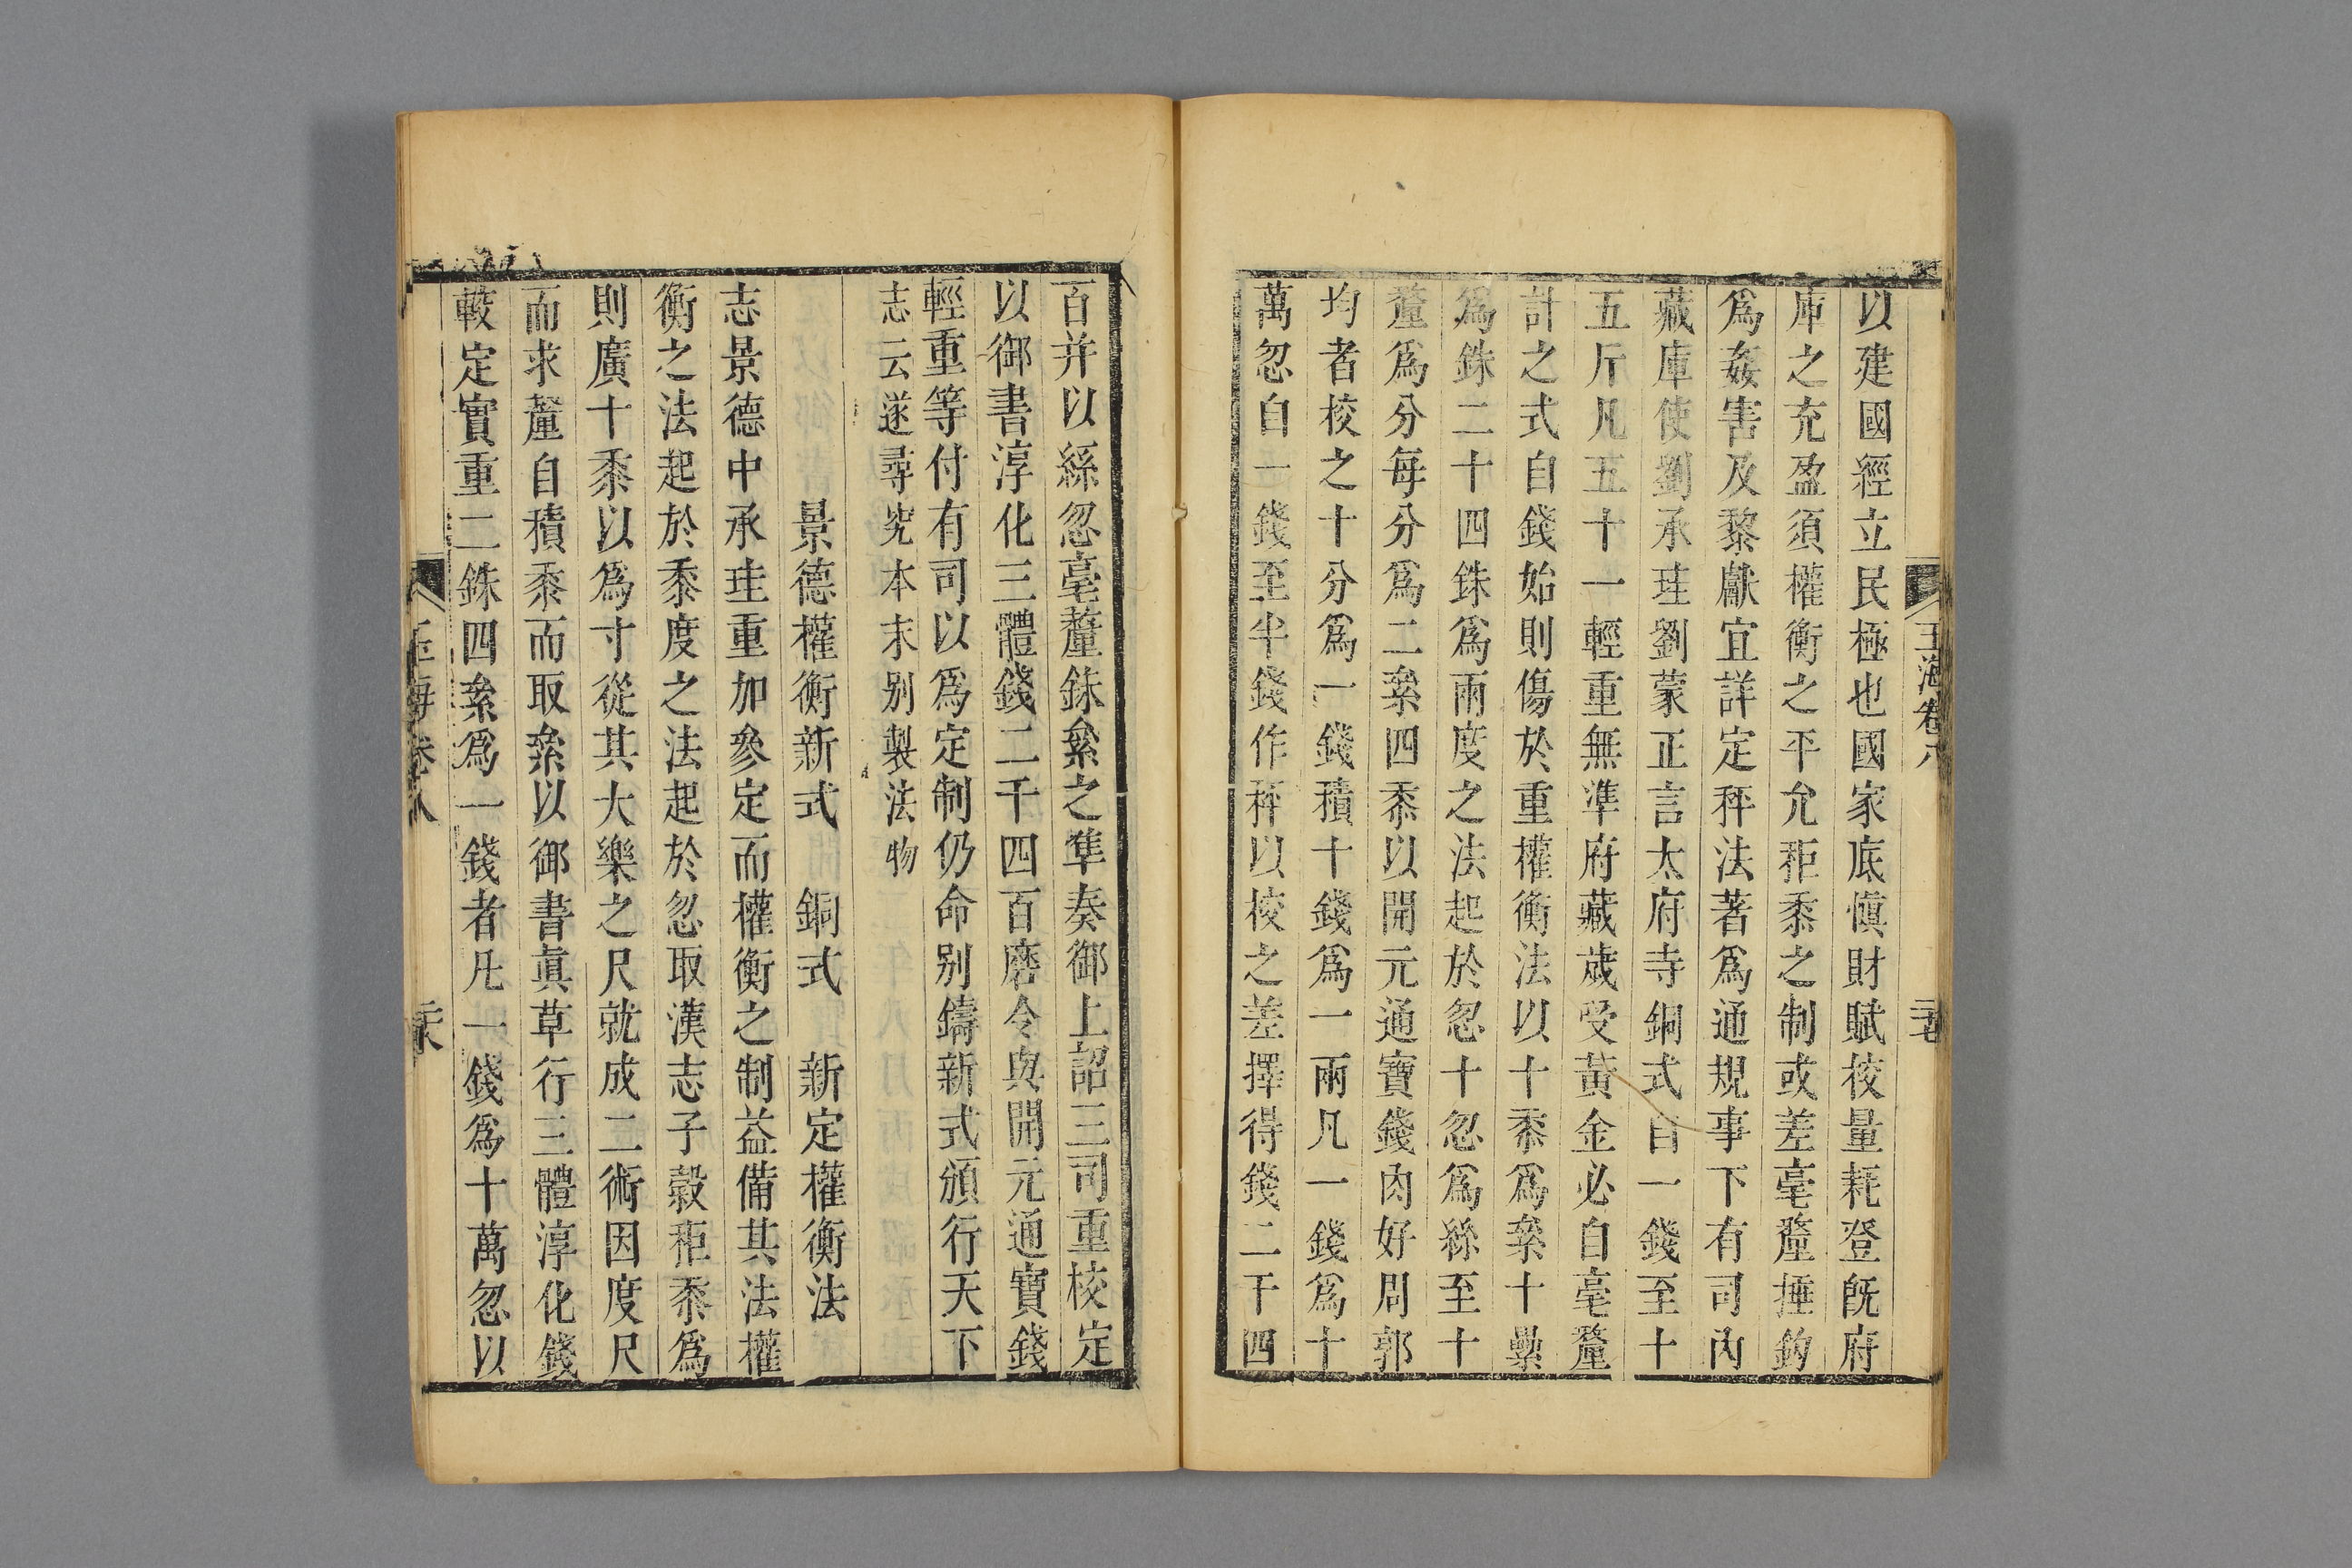 玉海卷八
以建國經立民極也國家底慎財賦校量耗登旣府
庫之充盈須權衡之平允秬黍之制或差毫釐捶鈎
爲姦害及黎獻宜詳定秤法著爲通規事下有司内
藏庫使劉承珪劉蒙正言太府寺銅式自一錢至十
五斤凡五十一輕重無準府藏歲受黃金必自毫釐
計之式自錢始則傷於重權衡法以十黍爲絫十絫
爲銖二十四銖爲兩度之法起於忽十忽爲絲至十
釐爲分每分爲二絫四黍以開元通寶錢肉好周郭
均者校之十分爲一錢積十錢爲一兩凡一錢爲十
萬忽自一錢至半錢作秤以校之差擇得錢二千四
百并以絲忽毫釐銖絫之準奏御上詔三司重校定
以御書淳化三體錢二千四百磨令與開元通寶錢
輕重等付有司以爲定制仍命别鑄新式頒行天下
志云遂尋究本末别製法物
景德權衡新式　銅式　新定權衡法
志景德中承珪重加參定而權衡之制益備其法權
衡之法起於黍度之法起於忽取漢志子穀秬黍爲
則廣十黍以爲寸從其大樂之尺就成二術因度尺
而求釐自積黍而取絫以御書眞草行三體淳化錢
較定實重二銖四絫爲一錢者凡一錢爲十萬忽以
玉海卷八